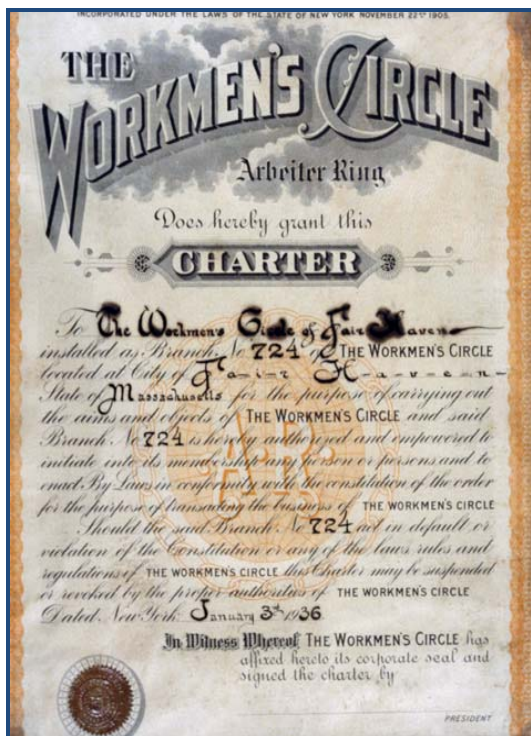 INCORPORATED UNDER THE LAWS OF THE STATE OF NEW YORK NOVEMBER 22ND 1905.
THE
WORKMEN'S CIRCLE
Arbeiter Ring
Does hereby grant this
CHARTER
To The Workmen's Circle of Fair Haven
installed as Branch No 724 of THE WORKMEN'S CIRCLE
located at City of F-a-i-r H-a-v-e-n-
State of Massachusetts for the purpose of carrying out
the aims and objects of THE WORKMEN'S CIRCLE and said
Branch No 724 is hereby authorized and empowered to
initiate into its membership any person or persons and to
enact By Laws in conformity with the constitution of the order
for the purpose of transacting the business of THE WORKMEN'S CIRCLE
Should the said Branch No 724 act in default or
violation of the Constitution or any of the laws rules and
regulations of THE WORKMEN'S CIRCLE this Charter may be suspended
or revoked by the proper authorities of THE WORKMEN'S CIRCLE
Dated, New York, January 3rd 1936.
In Witness Whereof, THE WORKMEN'S CIRCLE has
affixed hereto its corporate seal and
signed the charter by
PRESIDENT